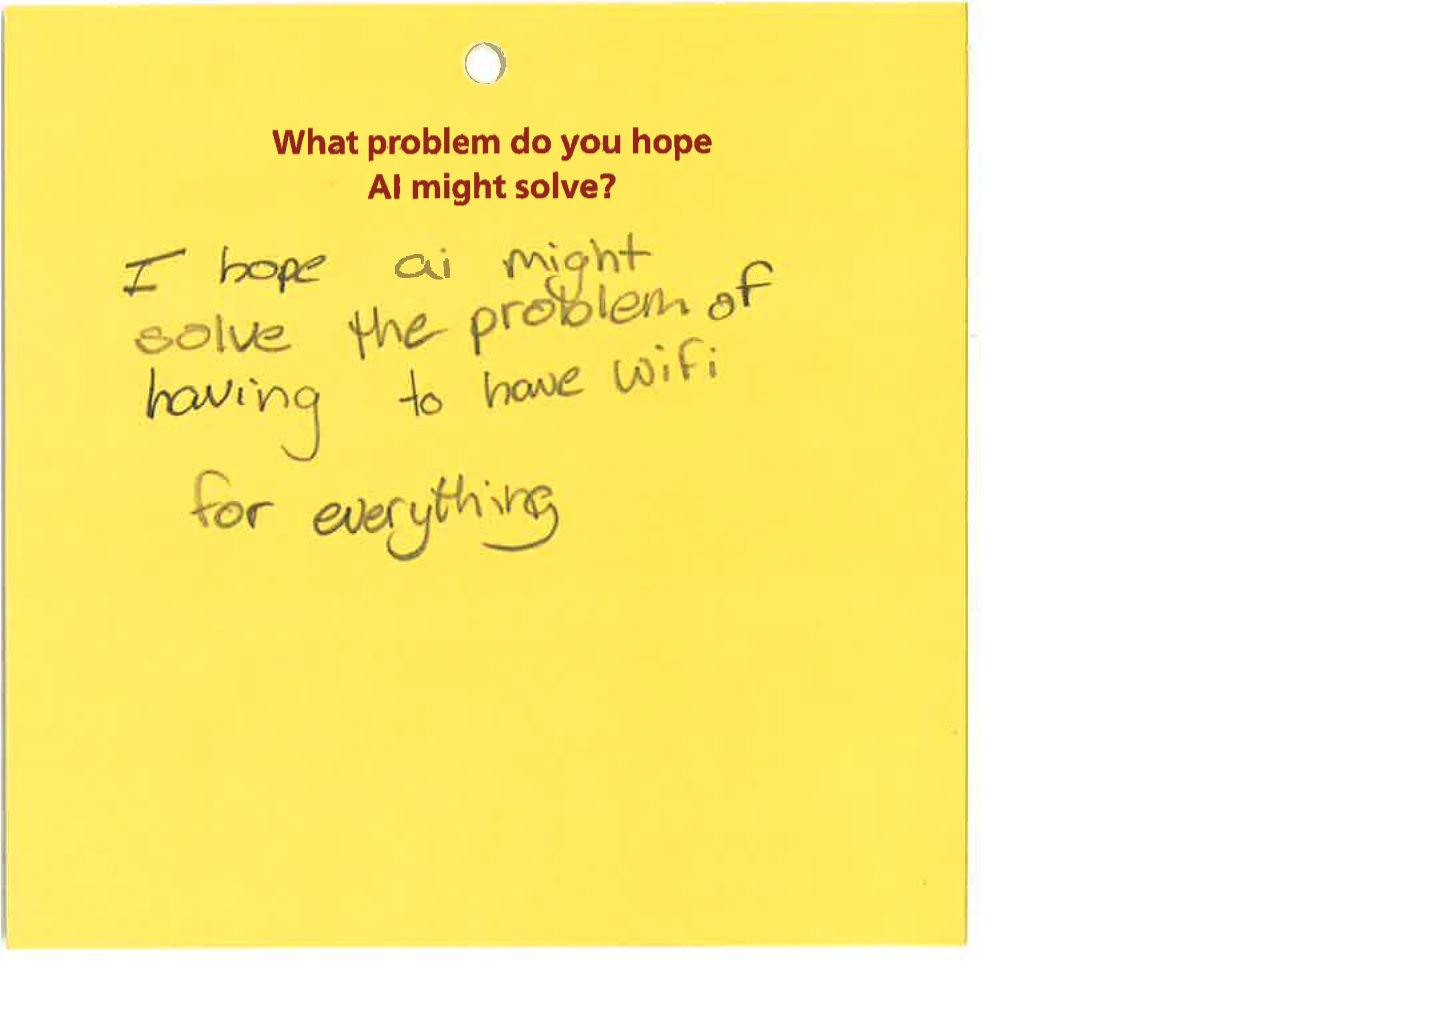 What problem do you hope
AI might solve?
I hope ai might
solve the problem of
having to have wifi
for everything